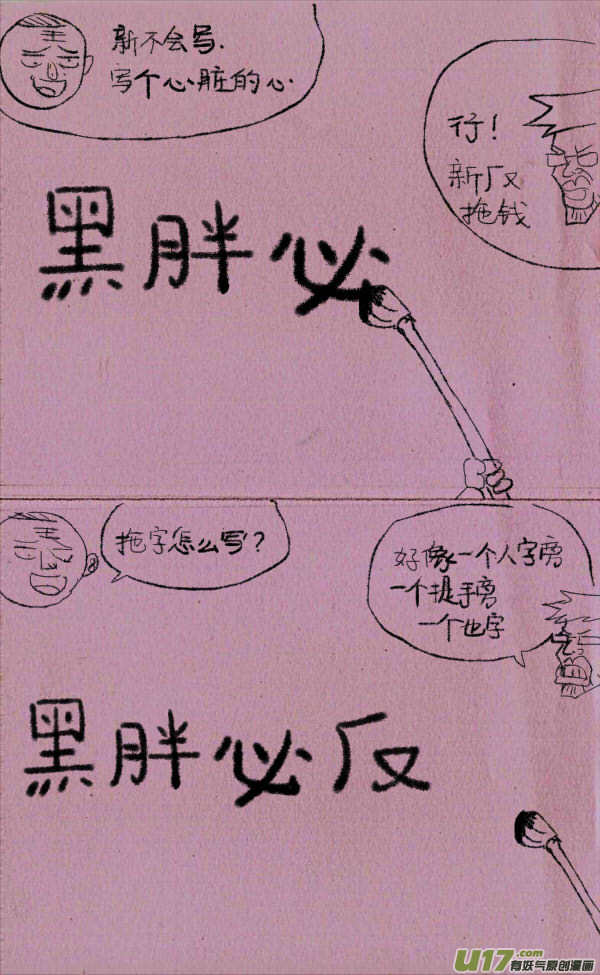 新不会写.
写个心脏的心
行!
新厂又
拖钱
黑胖必
拖字怎么写?
好像一个人字旁
一个提手旁
一个也字
黑胖必厂又
U17.com
有妖气原创漫画